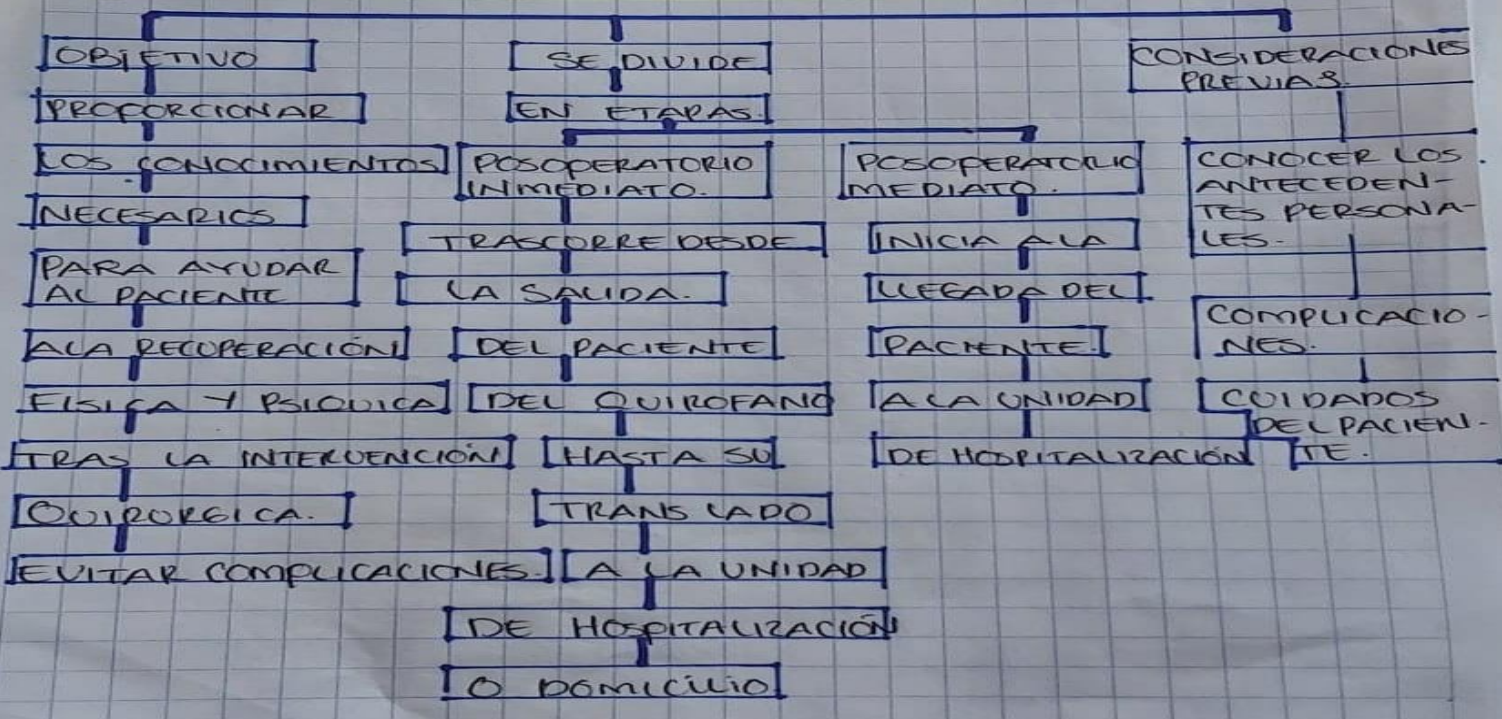 OBJETIVO
PROPORCIONAR
LOS CONOCIMIENTOS
NECESARIOS
PARA AYUDAR
AL PACIENTE
A LA RECUPERACIÓN
FISICA Y PSIQUICA
TRAS LA INTERVENCIÓN
QUIRURGICA.
EVITAR COMPLICACIONES.
SE DIVIDE
EN ETAPAS.
POSOPERATORIO
INMEDIATO.
TRASCORRE DESDE
LA SALIDA.
DEL PACIENTE
DEL QUIROFANO
HASTA SU
TRANSLADO
A LA UNIDAD
DE HOSPITALIZACIÓN
O DOMICILIO
POSOPERATORIO
MEDIATO.
INICIA A LA
LLEGADA DEL
PACIENTE.
A LA UNIDAD
DE HOSPITALIZACIÓN
CONSIDERACIONES
PREVIAS.
CONOCER LOS
ANTECEDEN-
TES PERSONA-
LES.
COMPLICACIO-
NES.
CUIDADOS
DEL PACIEN-
TE.